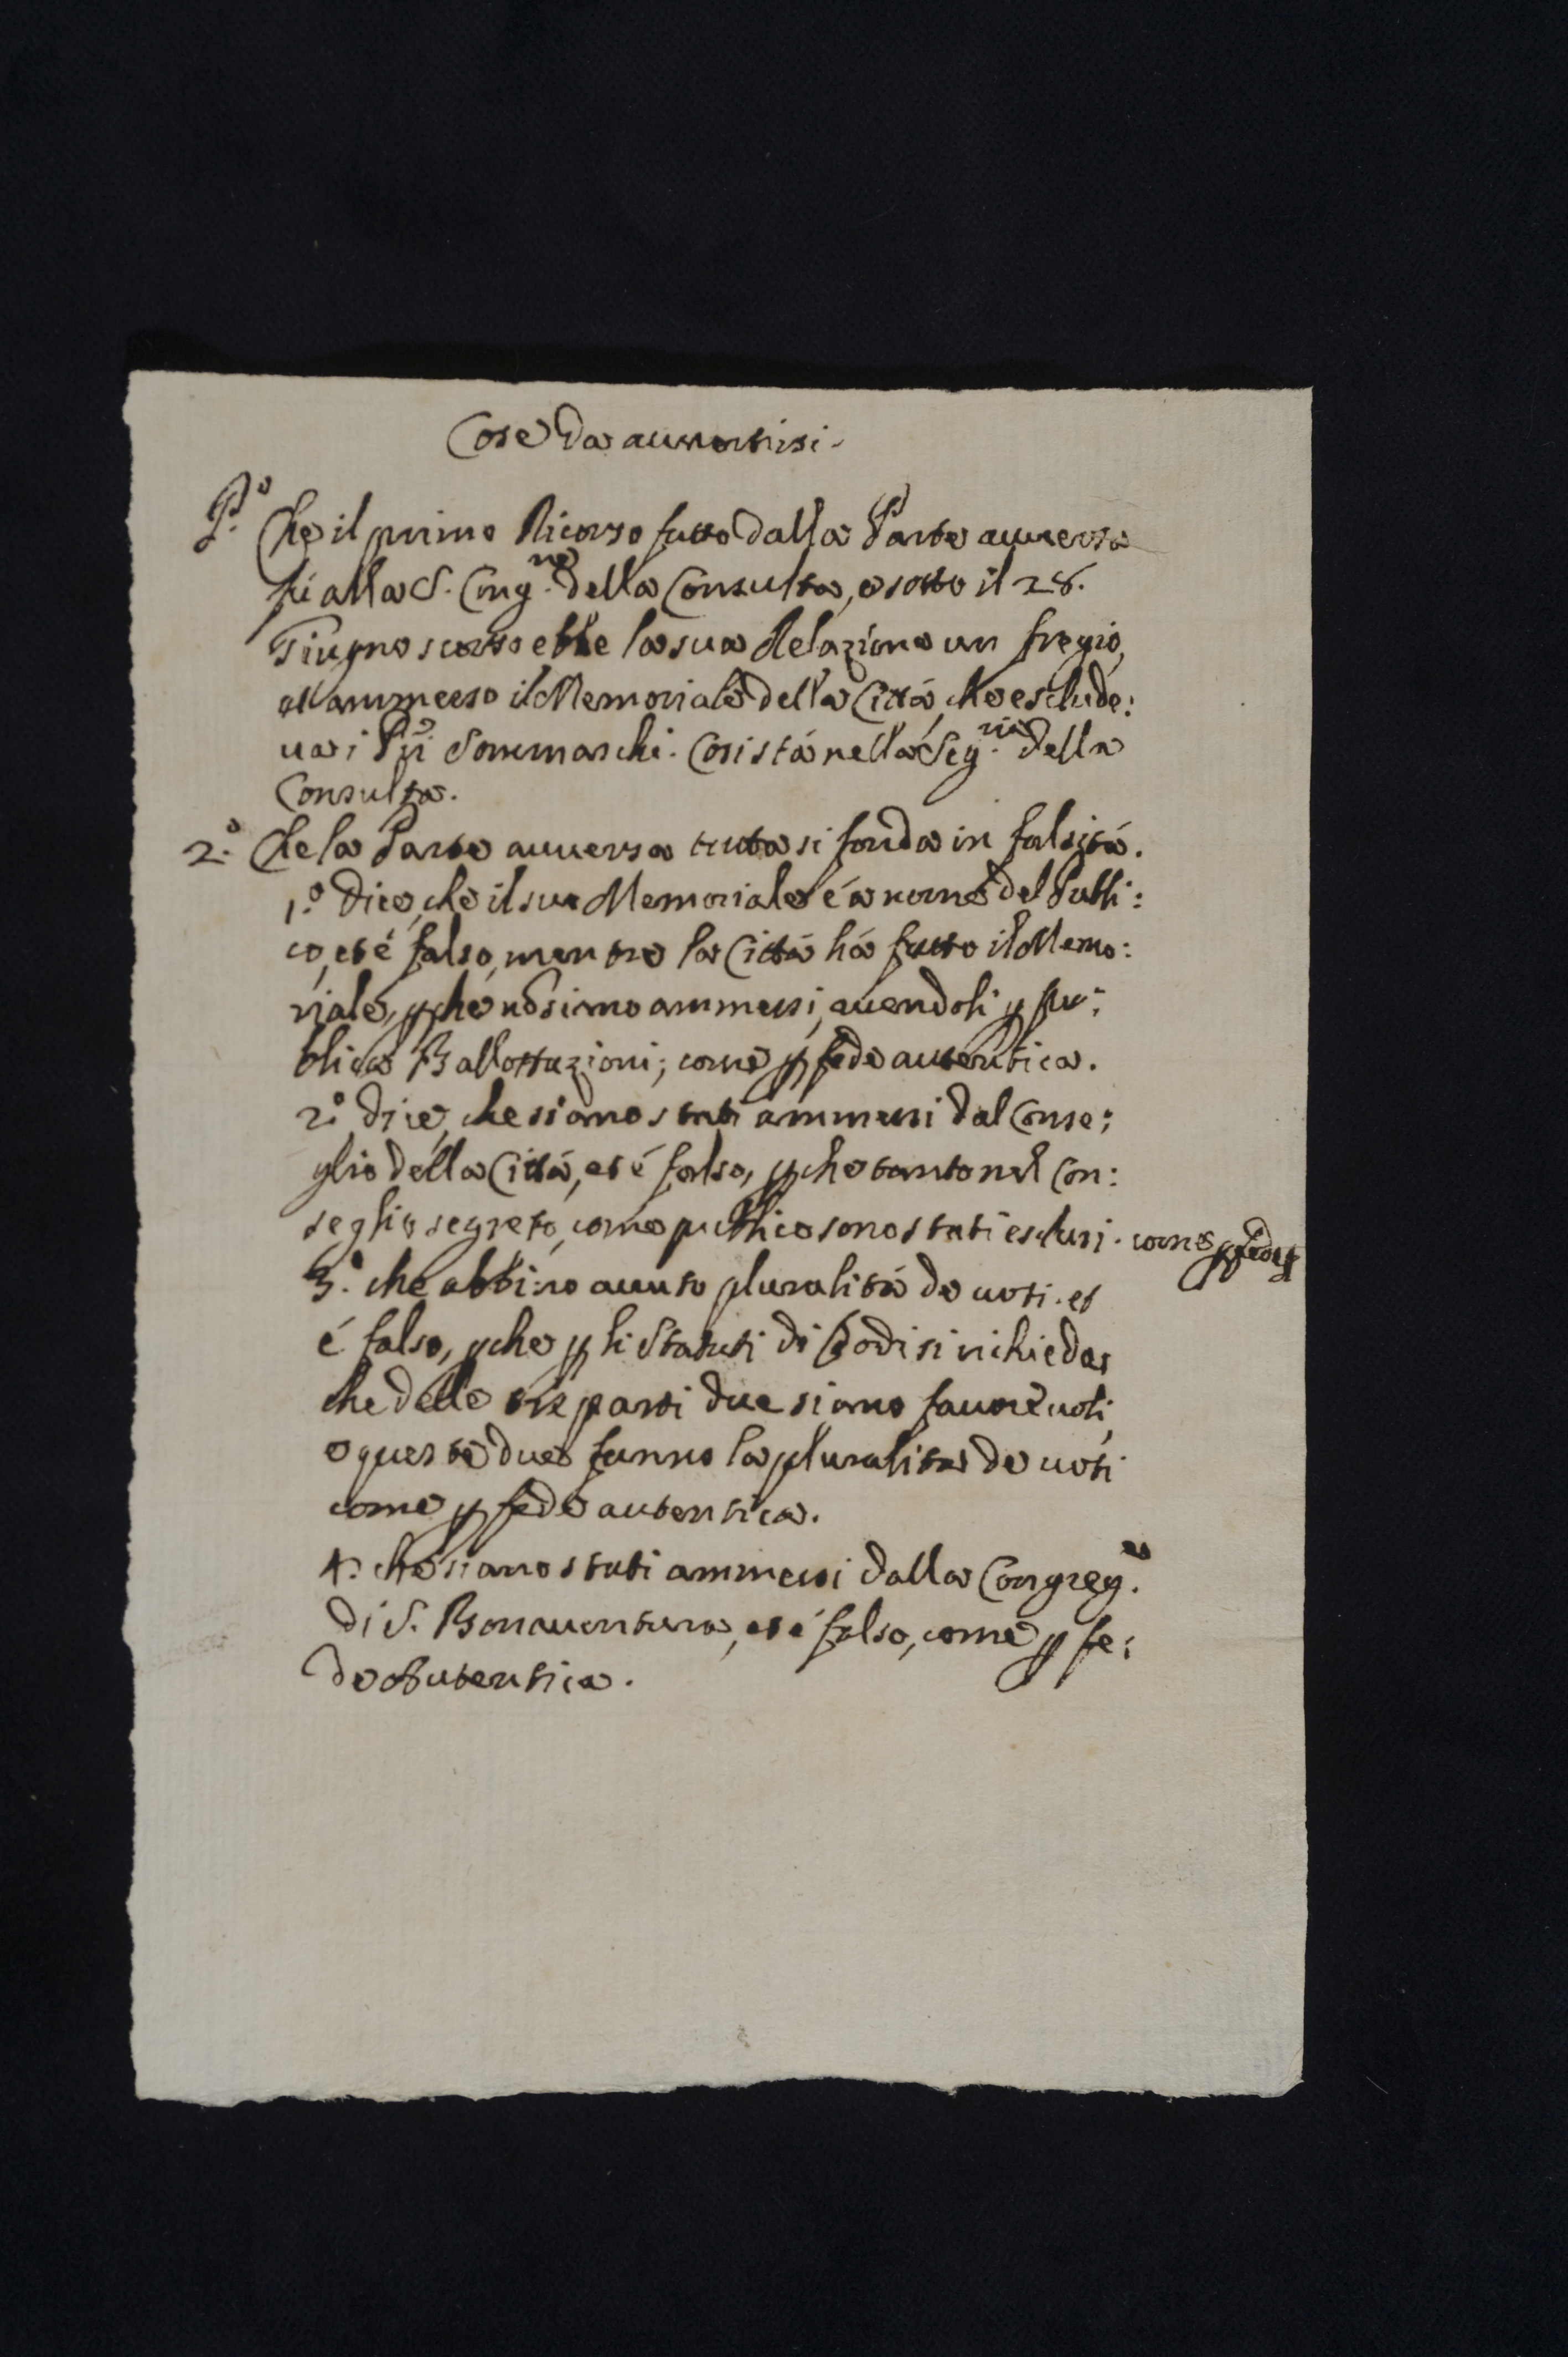 Cose da auuertirsi.
P.º Che il primo Ricorso fatto dalla Parte auuersa
fù alla S. Cong.ne della Consulta, e sotto il 28.
Giugno scorso ebbe la sua Relazione un fregio,
et ammesso il Memoriale della Città, che esclude:
ua i PP.i Sommaschi. Così stá nella Seg.ria della
Consulta.
2.º Che la Parte auuersa tutta si fonda in falsitá.
1.º Dice, che il suo Memoriale é a nome del Publi:
co, et é falso, mentre la Cittá há fatto il Memo:
riale, pche nõ siano ammessi, auendoli p pu:
blica Ballottazioni; come p fede autentica.
2.º dice, che siano stati ammessi dal Conse:
glio della Cittá, et é falso, pche tanto nel Con:
seglio segreto, come publico sono stati esclusi. come p fede
3.º che abbino auuto pluralitá de uoti. et
é falso, pche p li Statuti di Lodi si richieda
che delle tre parti due siano fauoreuoli,
e queste due fanno la pluralita de uoti
come p fede autentica.
4.º che siano stati ammessi dalla Congreg.e
di S. Bonauentura, et é falso, come p fe:
de Autentica.